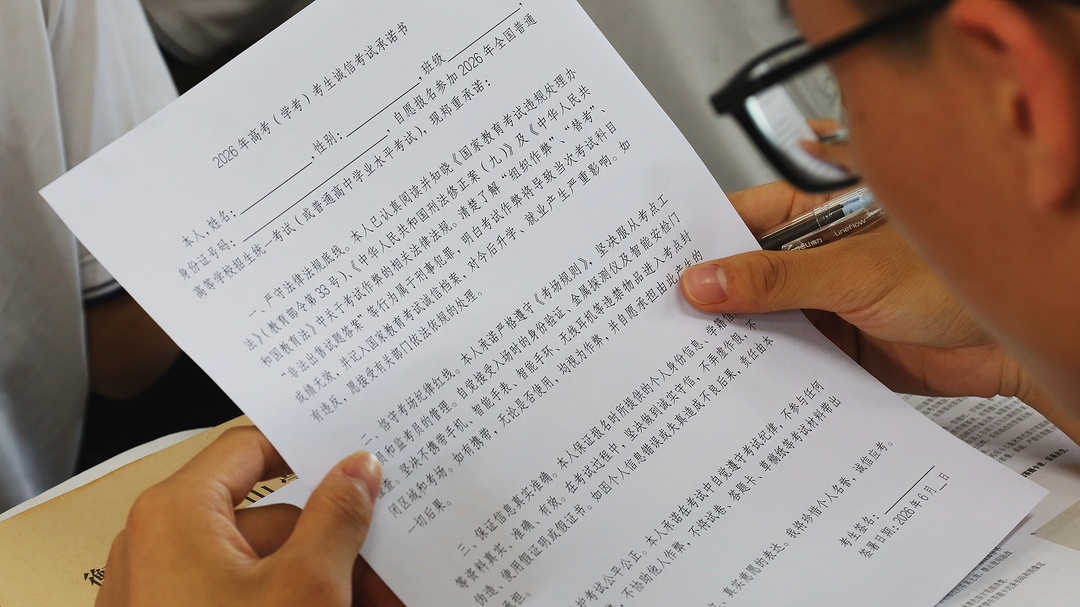 2026年高考（学考）考生诚信考试承诺书
本人,姓名：，性别：，班级，
身份证号码：，自愿报名参加2026年全国普通
高等学校招生统一考试（或普通高中学业水平考试），现郑重承诺：
一、严守法律法规底线。本人已认真阅读并知晓《国家教育考试违规处理办
法》（教育部令第33号）、《中华人民共和国刑法修正案（九）》及《中华人民共
和国教育法》中关于考试作弊的相关法律法规。清楚了解“组织作弊”、“替考”、
“非法出售试题答案”等行为属于刑事犯罪，明白考试作弊将导致当次考试科目
成绩无效，并记入国家教育考试诚信档案，对今后升学、就业产生严重影响。如
有违反，愿接受有关部门依法依规的处理。
二、恪守考场纪律红线。本人承诺严格遵守《考场规则》，坚决服从考点工
员和监考员的管理。自觉接受入场时的身份验证、金属探测仪及智能安检门
检查。坚决不携带手机、智能手表、智能手环、无线耳机等违禁物品进入考点封
闭区域和考场。如有携带，无论是否使用，均视为作弊，并自愿承担由此产生的
一切后果。
三、保证信息真实准确。本人保证报名时所提供的个人身份信息、学籍信
等资料真实、准确、有效。在考试过程中，坚决做到诚实守信，不弄虚作假，不
伪造、使用假证明或假证书。如因个人信息错误或失真造成不良后果，责任由本
承担。
护考试公平公正。本人承诺在考试中自觉遵守考试纪律，不参与任何
，不协助他人作弊，不将试卷、答题卡、草稿纸等考试材料带出
真实意愿的表达。我将珍惜个人名誉，诚信应考。
考生签名：
签署日期：2026年6月_日
deli
LineFlow